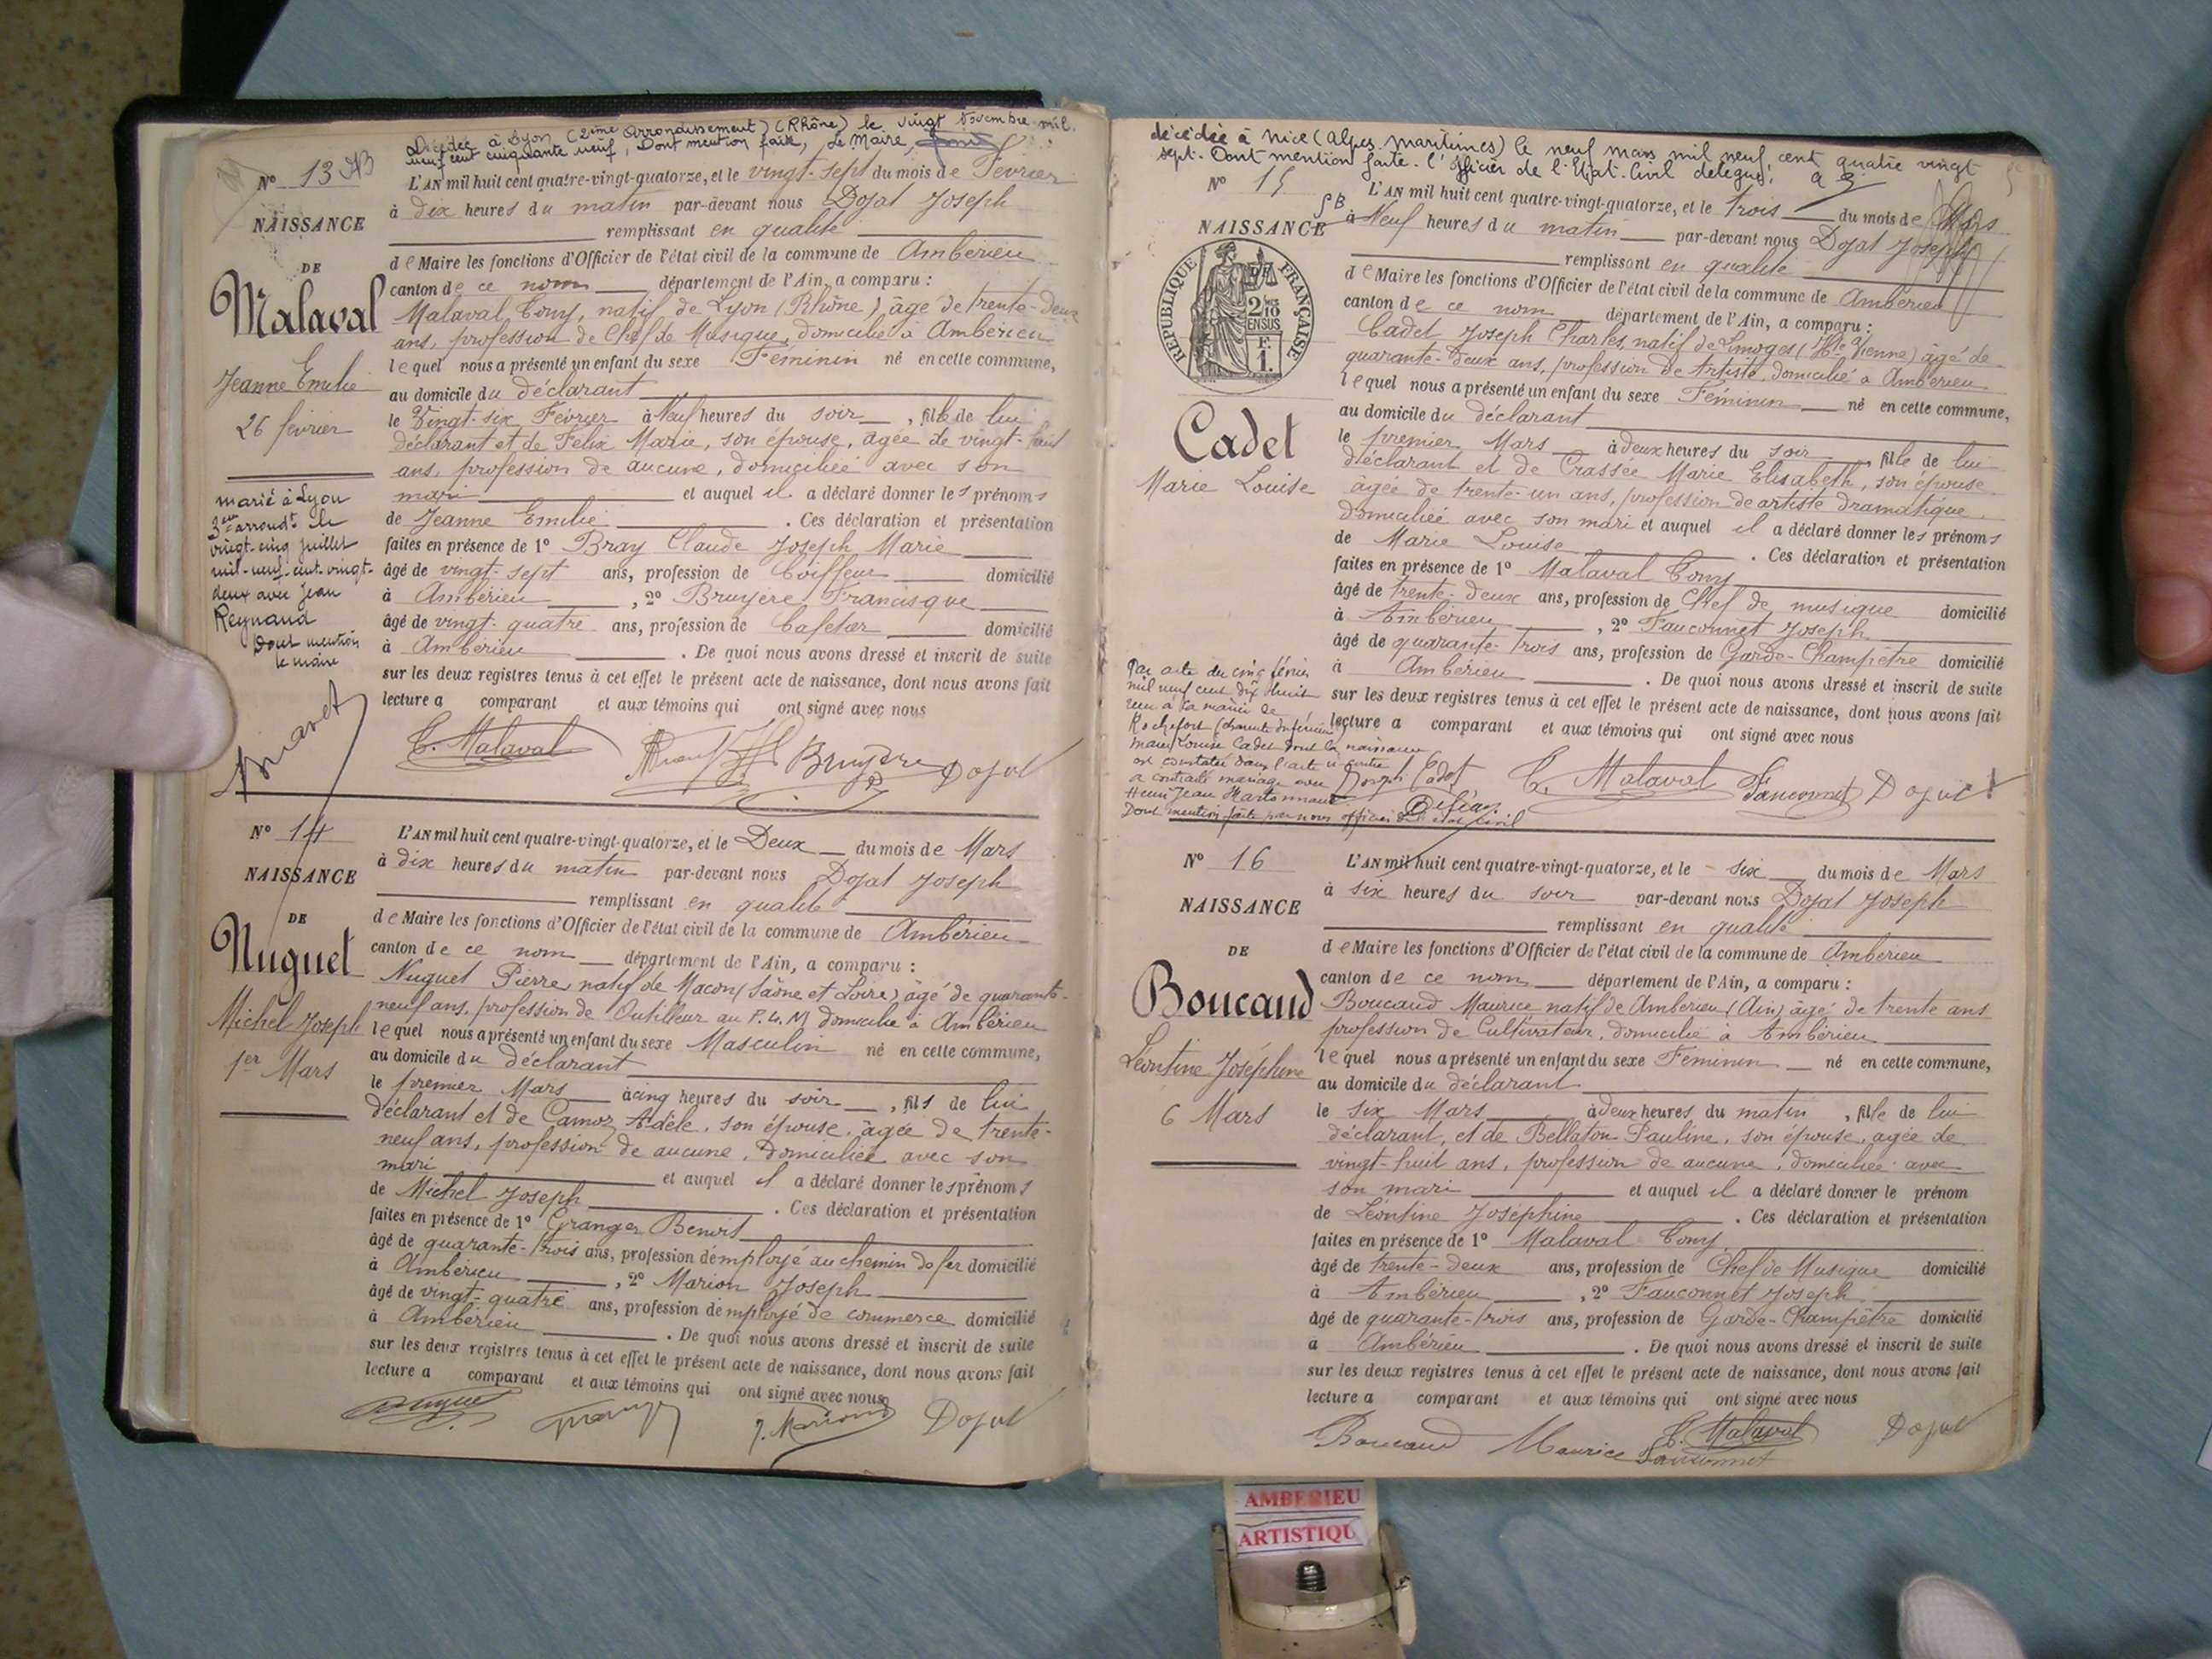 Décédée à Lyon (2ème Arrondissement) (Rhône) le vingt Novembre mil
neuf cent cinquante neuf, Dont mention faite, Le Maire,
N° 13
NAISSANCE
DE
Malaval
Jeanne Emilie
26 février
marié à Lyon
3e arrondt le
vingt-cinq juillet
mil-neuf-cent-vingt-
deux avec Jean
Reynaud
Dont mention
le maire
L'AN mil huit cent quatre-vingt-quatorze, et le vingt-sept du mois de Février
à dix heures du matin par-devant nous Dojat Joseph
remplissant en qualité
de Maire les fonctions d'Officier de l'état civil de la commune de Ambérieu
canton de ce nom département de l'Ain, a comparu :
Malaval Tony, natif de Lyon (Rhône) âgé de trente-deux
ans, profession de Chef de Musique, domicilié à Ambérieu
lequel nous a présenté un enfant du sexe Féminin né en cette commune,
au domicile du déclarant
le Vingt-six Février à Neuf heures du soir, fille de lui
déclarant et de Félix Marie, son épouse, âgée de vingt-huit
ans, profession de aucune, domiciliée avec son
mari et auquel il a déclaré donner les prénoms
de Jeanne Emilie . Ces déclaration et présentation
faites en présence de 1° Bray Claude Joseph Marie
âgé de vingt-sept ans, profession de Coiffeur domicilié
à Ambérieu, 2° Bruyère Francisque
âgé de vingt-quatre ans, profession de Cafetier domicilié
à Ambérieu . De quoi nous avons dressé et inscrit de suite
sur les deux registres tenus à cet effet le présent acte de naissance, dont nous avons fait
lecture a comparant et aux témoins qui ont signé avec nous
T. Malaval Bruyère Dojat
N° 14
NAISSANCE
DE
Nuguet
Michel Joseph
1er Mars
L'AN mil huit cent quatre-vingt-quatorze, et le Deux du mois de Mars
à dix heures du matin par-devant nous Dojat Joseph
remplissant en qualité
de Maire les fonctions d'Officier de l'état civil de la commune de Ambérieu
canton de ce nom département de l'Ain, a comparu :
Nuguet Pierre natif de Macon (Saône et Loire) âgé de quarante-
neuf ans, profession de Outilleur au P.L.M domicilié à Ambérieu
lequel nous a présenté un enfant du sexe Masculin né en cette commune,
au domicile du déclarant
le premier Mars à cinq heures du soir, fils de lui
déclarant et de Camoz Adèle, son épouse, âgée de trente-
neuf ans, profession de aucune, domiciliée avec son
mari et auquel il a déclaré donner les prénoms
de Michel Joseph . Ces déclaration et présentation
faites en présence de 1° Granger Benoit
âgé de quarante-trois ans, profession d'employé au chemin de fer domicilié
à Ambérieu, 2° Marion Joseph
âgé de vingt-quatre ans, profession d'employé de commerce domicilié
à Ambérieu . De quoi nous avons dressé et inscrit de suite
sur les deux registres tenus à cet effet le présent acte de naissance, dont nous avons fait
lecture a comparant et aux témoins qui ont signé avec nous
Nuguet J. Marion Dojat
décédée à Nice (Alpes Maritimes) le neuf mars mil neuf cent quatre vingt
sept. Dont mention faite. l'officier de l'Etat-Civil délégué,
N° 15
NAISSANCE
DE
RÉPUBLIQUE FRANÇAISE
2/10 EN SUS
F. 1.
Cadet
Marie Louise
Par acte du cinq février
mil neuf cent dix huit
reçu à la mairie de
Rochefort (charente inférieure)
marie Louise Cadet dont la naissance
est constatée dans l'acte ci contre
a contracté mariage avec
Henri Jean
Dont mention faite par nous officier de l'état civil
L'AN mil huit cent quatre-vingt-quatorze, et le trois du mois de Mars
à Neuf heures du matin par-devant nous Dojat Joseph
remplissant en qualité
de Maire les fonctions d'Officier de l'état civil de la commune de Ambérieu
canton de ce nom département de l'Ain, a comparu :
Cadet Joseph Charles, natif de Limoges (Hte Vienne) âgé de
quarante-deux ans, profession de Artiste, domicilié à Ambérieu
lequel nous a présenté un enfant du sexe Féminin né en cette commune,
au domicile du déclarant
le premier Mars à deux heures du soir, fille de lui
déclarant et de Crassée Marie Elisabeth, son épouse,
âgée de trente-un ans, profession de artiste dramatique,
domiciliée avec son mari et auquel il a déclaré donner les prénoms
de Marie Louise . Ces déclaration et présentation
faites en présence de 1° Malaval Tony
âgé de trente-deux ans, profession de Chef de musique domicilié
à Ambérieu, 2° Fauconnet Joseph
âgé de quarante-trois ans, profession de Garde-Champêtre domicilié
à Ambérieu . De quoi nous avons dressé et inscrit de suite
sur les deux registres tenus à cet effet le présent acte de naissance, dont nous avons fait
lecture a comparant et aux témoins qui ont signé avec nous
Joseph Cadet T. Malaval Fauconnet Dojat
N° 16
NAISSANCE
DE
Boucaud
Léontine Joséphine
6 Mars
L'AN mil huit cent quatre-vingt-quatorze, et le six du mois de Mars
à six heures du soir par-devant nous Dojat Joseph
remplissant en qualité
de Maire les fonctions d'Officier de l'état civil de la commune de Ambérieu
canton de ce nom département de l'Ain, a comparu :
Boucaud Maurice natif de Ambérieu (Ain) âgé de trente ans
profession de Cultivateur, domicilié à Ambérieu
lequel nous a présenté un enfant du sexe Féminin né en cette commune,
au domicile du déclarant
le six Mars à deux heures du matin, fille de lui
déclarant, et de Bellaton Pauline, son épouse, âgée de
vingt-huit ans, profession de aucune, domiciliée avec
son mari et auquel il a déclaré donner le prénom
de Léontine Joséphine . Ces déclaration et présentation
faites en présence de 1° Malaval Tony
âgé de trente-deux ans, profession de Chef de Musique domicilié
à Ambérieu, 2° Fauconnet Joseph
âgé de quarante-trois ans, profession de Garde-Champêtre domicilié
a Ambérieu . De quoi nous avons dressé et inscrit de suite
sur les deux registres tenus à cet effet le présent acte de naissance, dont nous avons fait
lecture a comparant et aux témoins qui ont signé avec nous
Boucaud Maurice T. Malaval Dojat
Fauconnet
AMBERIEU
ARTISTIQU